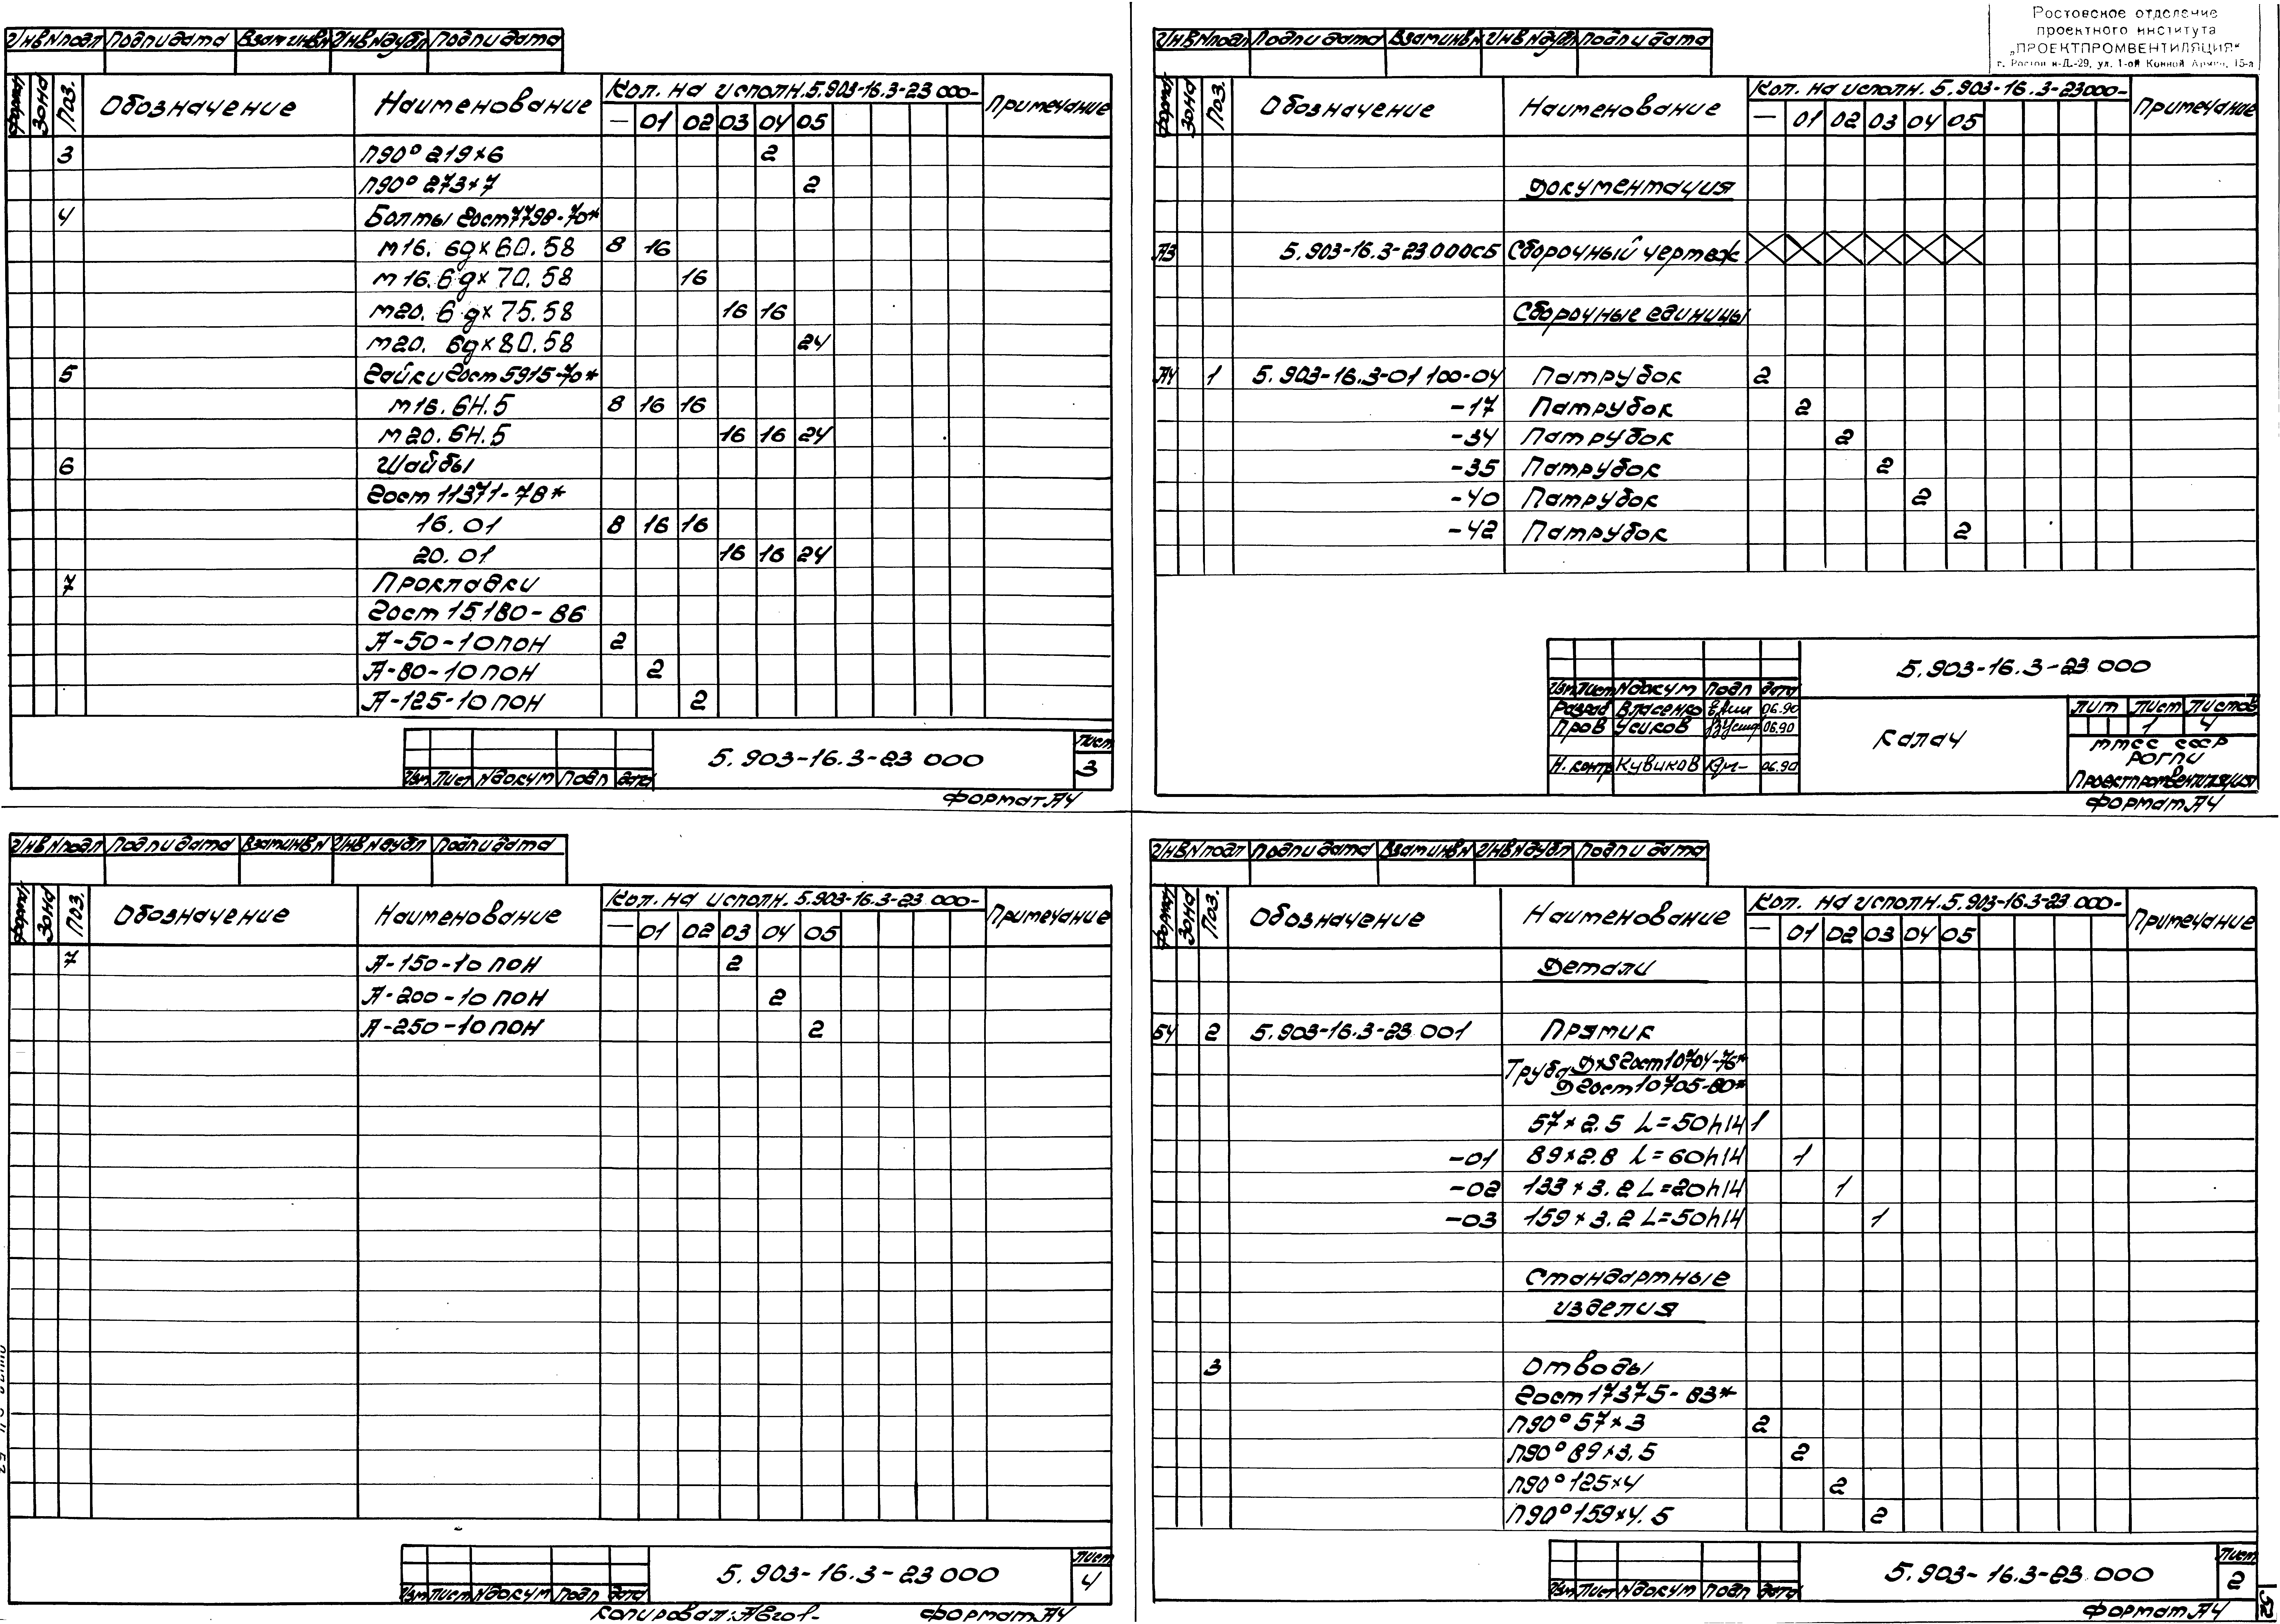 Инв N подл Подп и дата Взам инв N Инв N дубл Подп и дата
Формат Зона Поз. Обозначение Наименование Кол. на исполн. 5.903-16.3-23 000- Примечание
— 01 02 03 04 05
3 П90° 219×6 2
П90° 273×7 2
4 Болты Гост 7798-70*
М16. 6g×60.58 8 16
М16. 6g×70.58 16
М20. 6g×75.58 16 16
М20. 6g×80.58 24
5 Гайки Гост 5915-70*
М16. 6Н.5 8 16 16
М20. 6Н.5 16 16 24
6 Шайбы
Гост 11371-78*
16.01 8 16 16
20.01 16 16 24
7 Прокладки
Гост 15180-86
А-50-10 ПОН 2
А-80-10 ПОН 2
А-125-10 ПОН 2
5.903-16.3-23 000
Лист
3
Изм Лист N докум Подп дата
Формат А4
Ростовское отделение
проектного института
„ПРОЕКТПРОМВЕНТИЛЯЦИЯ"
г. Ростов н-Д.-29, ул. 1-ой Конной Армии, 15-а
Инв N подл Подп и дата Взам инв N Инв N дубл Подп и дата
Формат Зона Поз. Обозначение Наименование Кол. на исполн. 5.903-16.3-23000- Примечание
— 01 02 03 04 05
Документация
А3 5.903-16.3-23.000СБ Сборочный чертеж
Сборочные единицы
А4 1 5.903-16.3-01 100-04 Патрубок 2
-17 Патрубок 2
-34 Патрубок 2
-35 Патрубок 2
-40 Патрубок 2
-42 Патрубок 2
5.903-16.3-23 000
Изм Лист N докум Подп дата
Разраб Власенко 06.90
Пров Усиков 06.90
Н. контр Кувиков 06.90
Калач
Лит Лист Листов
1 4
ММСС СССР
РОГПИ
Проектпромвентиляция
Формат А4
Инв N подл Подп и дата Взам инв N Инв N дубл Подп и дата
Формат Зона Поз. Обозначение Наименование Кол. на исполн. 5.903-16.3-23 000- Примечание
— 01 02 03 04 05
7 А-150-10 ПОН 2
А-200-10 ПОН 2
А-250-10 ПОН 2
5.903-16.3-23 000
Лист
4
Изм Лист N докум Подп дата
Копировал: Формат А4
Инв N подл Подп и дата Взам инв N Инв N дубл Подп и дата
Формат Зона Поз. Обозначение Наименование Кол. на исполн. 5.903-16.3-23 000- Примечание
— 01 02 03 04 05
Детали
БЧ 2 5.903-16.3-23 001 Прямик
Труба Д×S Гост 10704-76*
Д Гост 10705-80*
57×2.5 L=50h14 1
-01 89×2.8 L=60h14 1
-02 133×3.2 L=20h14 1
-03 159×3.2 L=50h14 1
Стандартные
изделия
3 Отводы
Гост 17375-83*
П90° 57×3 2
П90° 89×3.5 2
П90° 125×4 2
П90° 159×4.5 2
5.903-16.3-23.000
Лист
2
Изм Лист N докум Подп дата
Формат А4
52